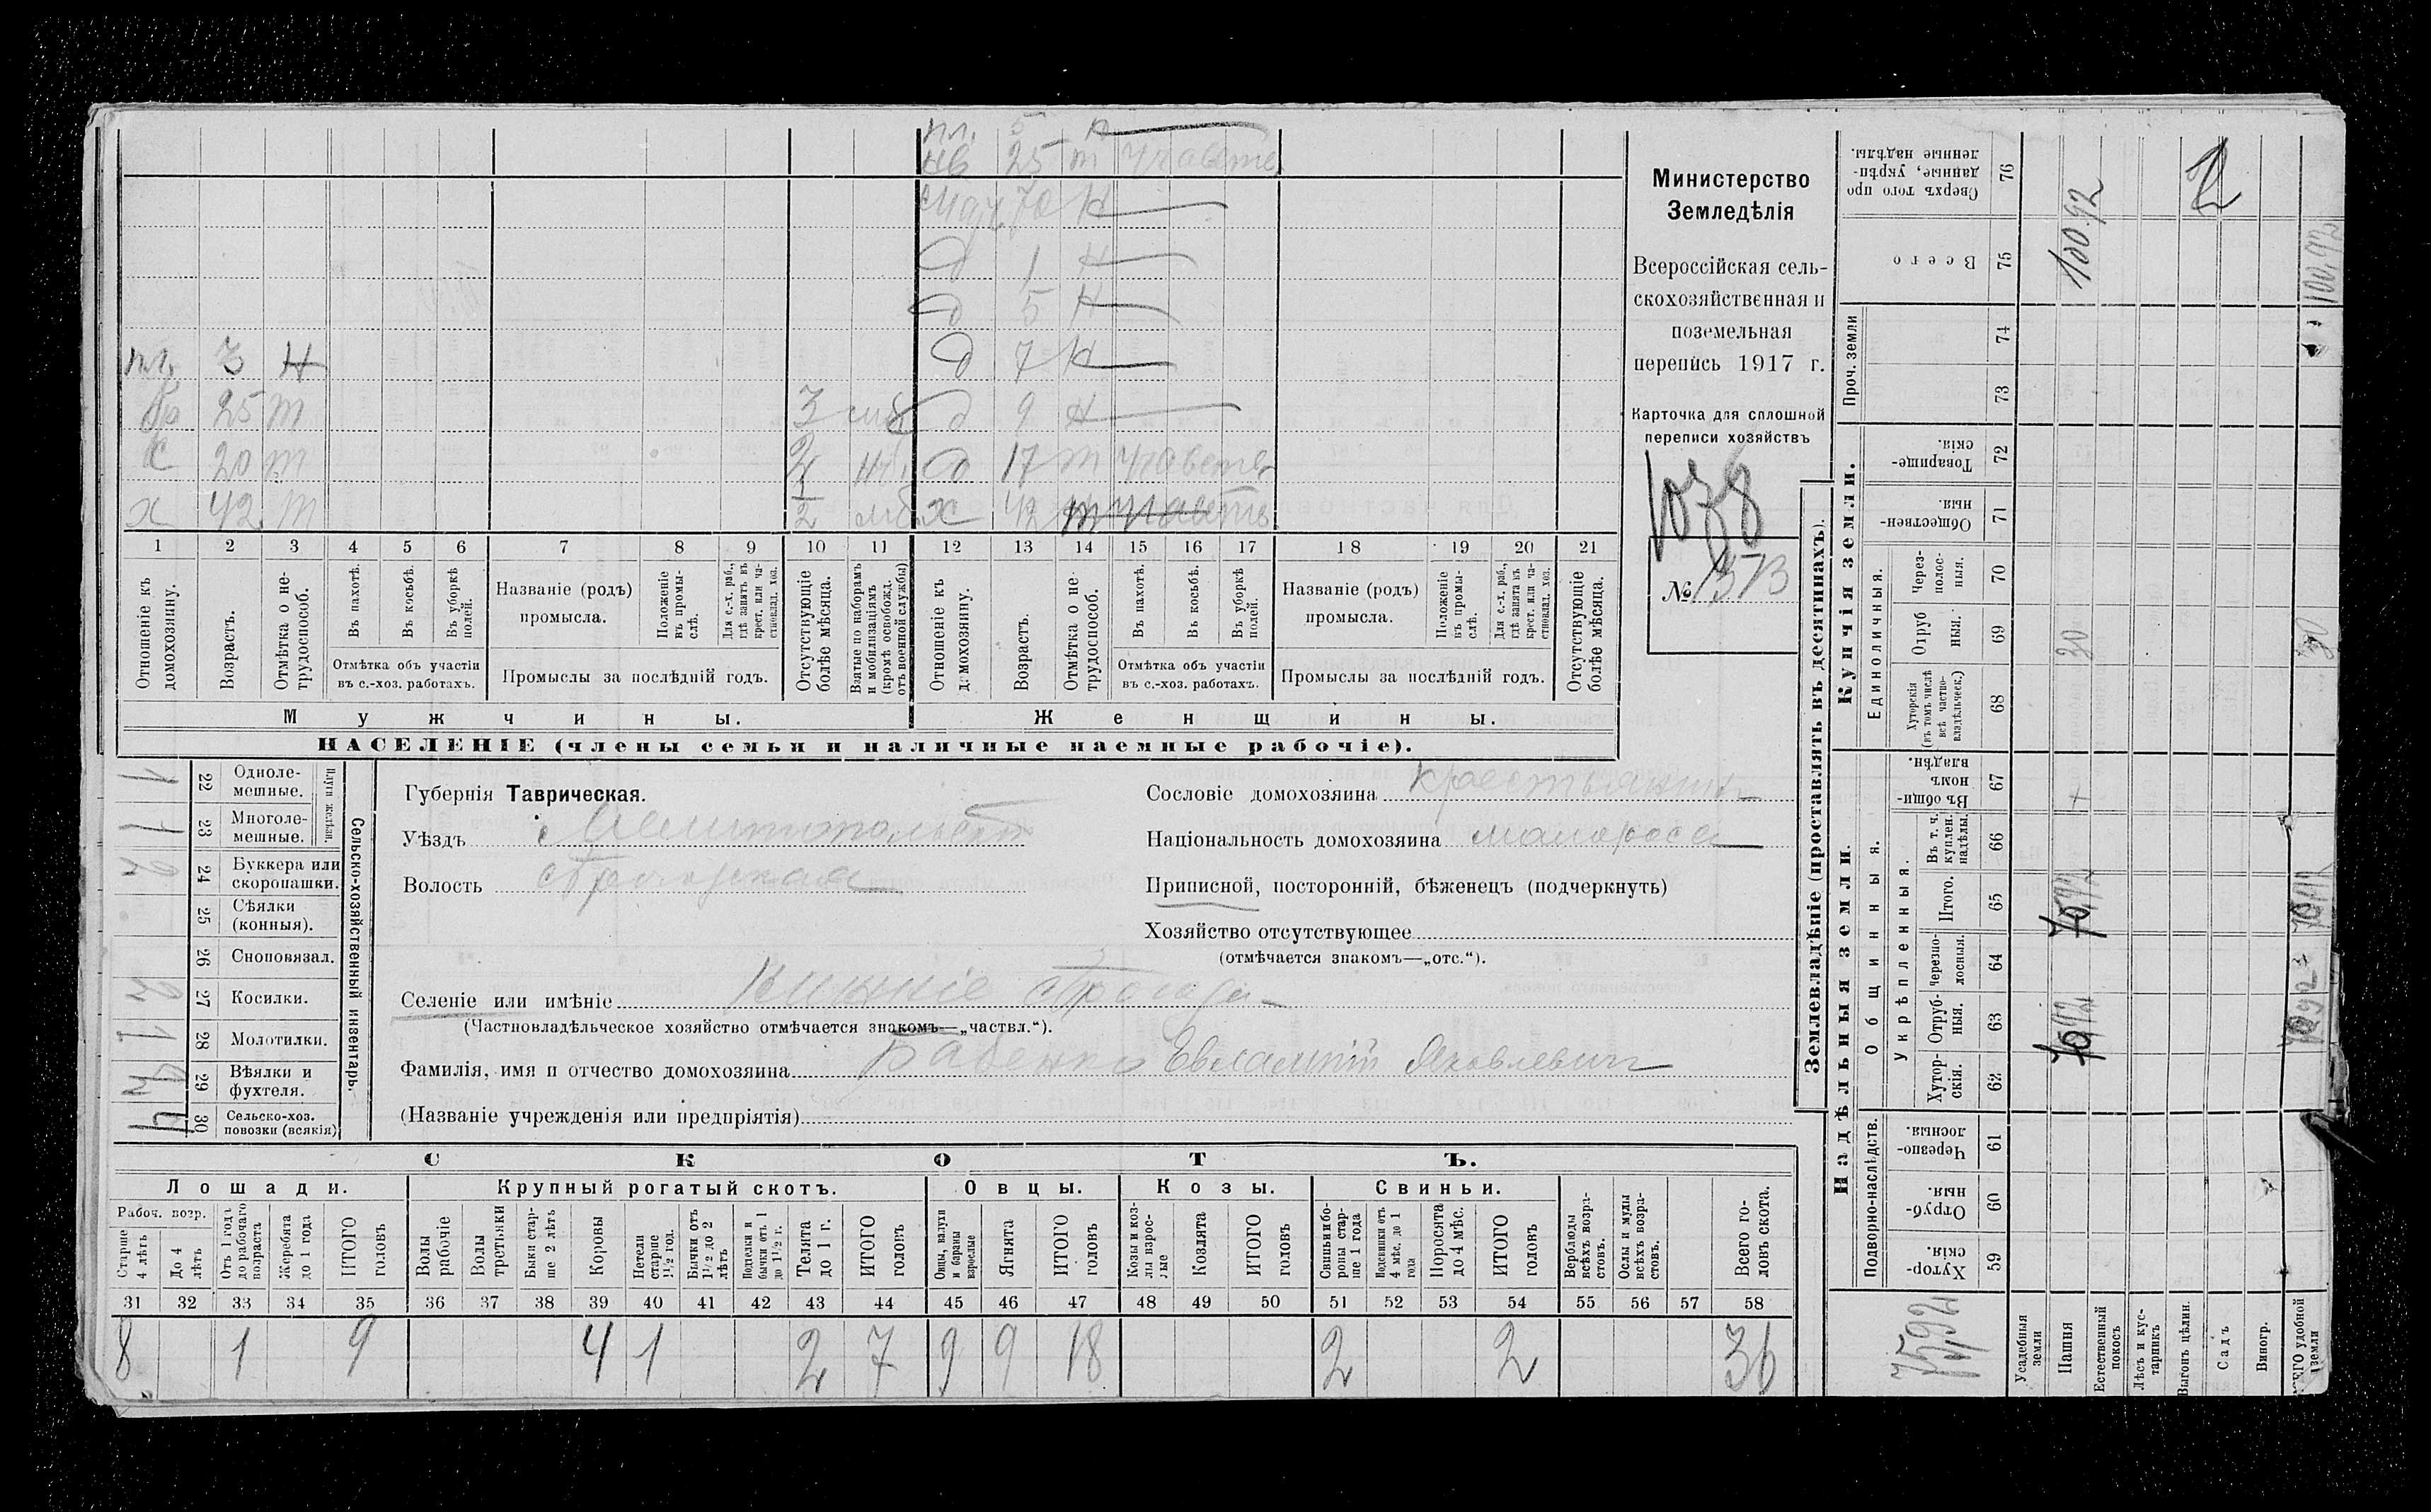 пл. 5 н
нв 25 т участв
мач 70 н
д 1 н
д 5 н
пл. 3 н д 7 н
бр 25 т 3 моб д 9 н
с 20 т 2 моб. д 17 т участв
х 42 т 1/2 моб. х 42 т участв
1 2 3 4 5 6 7 8 9 10 11 12 13 14 15 16 17 18 19 20 21
Отношеніе къ домохозяину.
Возрастъ.
Отмѣтка о не-трудоспособ.
Въ пахотѣ.
Въ косьбѣ.
Въ уборкѣ полей.
Отмѣтка объ участіи
въ с.-хоз. работахъ.
Названіе (родъ)
промысла.
Положеніе въ промы-слѣ.
Для с.-х. раб., гдѣ занятъ въ крест. или ча-стновлад. хоз.
Промыслы за послѣдній годъ.
Отсутствующіе болѣе мѣсяца.
Взятые по наборамъ и мобилизаціямъ (кромѣ освобожд. отъ военной службы)
Отношеніе къ домохозяину.
Возрастъ.
Отмѣтка о не трудоспособ.
Въ пахотѣ.
Въ косьбѣ.
Въ уборкѣ полей.
Отмѣтка объ участіи
въ с.-хоз. работахъ.
Названіе (родъ)
промысла.
Положеніе въ промы-слѣ.
Для с.-х. раб., гдѣ занята въ крест. или ча-стновлад. хоз.
Промыслы за послѣдній годъ.
Отсутствующіе болѣе мѣсяца.
Мужчины.
Женщины.
НАСЕЛЕНІЕ (члены семьи и наличные наемные рабочіе).
Министерство
Земледѣлія
Всероссійская сель-
скохозяйственная и
поземельная
перепись 1917 г.
Карточка для сплошной
переписи хозяйствъ
№ 1373
Сельско-хозяйственный инвентарь.
Плуги желѣзн.
1 22 Одноле-мешные.
1 23 Многоле-мешные.
2 24 Буккера или скоропашки.
25 Сѣялки (конныя).
26 Сноповязал.
2 27 Косилки.
1 28 Молотилки.
29 Вѣялки и фухтеля.
4 30 Сельско-хоз. повозки (всякія)
Губернія Таврическая.
Уѣздъ Мелитопольскій
Волость Строгоновская
Сословіе домохозяина крестьянинъ
Національность домохозяина малороссъ
Приписной, посторонній, бѣженецъ (подчеркнуть)
Хозяйство отсутствующее
(отмѣчается знакомъ—„отс.“).
Селеніе или имѣніе
(Частновладѣльческое хозяйство отмѣчается знакомъ—„частвл.“).
Фамилія, имя и отчество домохозяина Бабенко Евлампій Яковлевичъ
(Названіе учрежденія или предпріятія)
СКОТЪ.
Лошади. Крупный рогатый скотъ. Овцы. Козы. Свиньи.
Рабоч. возр.
Старше 4 лѣтъ
До 4 лѣтъ
Отъ 1 года до рабочаго возраста
Жеребята до 1 года
ИТОГО головъ
Волы рабочіе
Волы третьяки
Быки стар-ше 2 лѣтъ
Коровы
Нетели старше 1½ год.
Бычки отъ 1½ до 2 лѣтъ
Подтелки и бычки отъ 1 до 1½ г.
Телята до 1 г.
ИТОГО головъ
Овцы, валухи и бараны взрослые
Ягнята
ИТОГО головъ
Козы и коз-лы взрос-лые
Козлята
ИТОГО головъ
Свиньи и бо-ровы стар-ше 1 года
Подсвинки отъ 4 мѣс. до 1 года
Поросята до 4 мѣс.
ИТОГО головъ
Верблюды всѣхъ возра-стовъ.
Ослы и мулы всѣхъ возра-стовъ.
Всего го-ловъ скота.
31 32 33 34 35 36 37 38 39 40 41 42 43 44 45 46 47 48 49 50 51 52 53 54 55 56 57 58
8 1 9 4 1 2 7 9 9 18 2 2 36
Землевладѣніе (проставлять въ десятинахъ).
Надѣльныя земли.
Подворно-наслѣдств.
Хутор-скія. 59
Отруб-ныя. 60
Черезпо-лосныя. 61
Общинныя.
Укрѣпленныя.
Хутор-скія. 62
Отруб-ныя. 63
черезпо-лосныя. 64
Итого. 65
Въ т. ч. куплен. надѣлы. 66
Въ общи-номъ владѣн. 67
Купчія земли.
Единоличныя.
Хуторскія (въ томъ числѣ всѣ частно-владѣльческ.) 68
Отруб ныя. 69
Через-полос-ныя. 70
Обществен-ныя. 71
Товарище-скія. 72
Проч. земли
73 74
Всего 75
Сверхъ того про данные, укрѣп-ленные надѣлы. 76
75,92
Усадебныя земли
Пашня
Естественный покосъ
Лѣсъ и кус-тарникъ
Выгонъ цѣлин.
Садъ
Виногр.
удобной земли
70,92 30 100,92
2
30 100,92